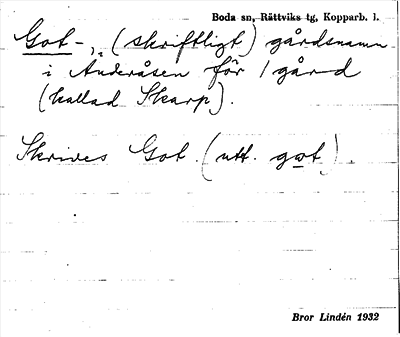 Boda sn, Rättviks tg, Kopparb. l.
Got-, (skriftligt) gårdsnamn
i Anderåsen för 1 gård
(kallad Skarp).
Skrives Got. (utt. gωt).
Bror Lindén 1932